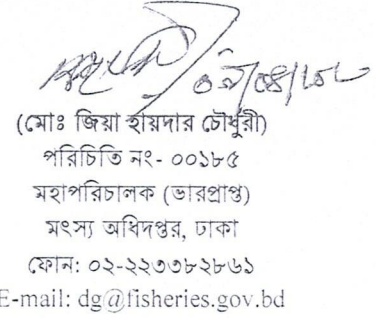 (মোঃ জিয়া হায়দার চৌধুরী)
পরিচিতি নং- ০০১৮৫
মহাপরিচালক (ভারপ্রাপ্ত)
মৎস্য অধিদপ্তর, ঢাকা
ফোন: ০২-২২৩৩৮২৮৬১
E-mail: dg@fisheries.gov.bd